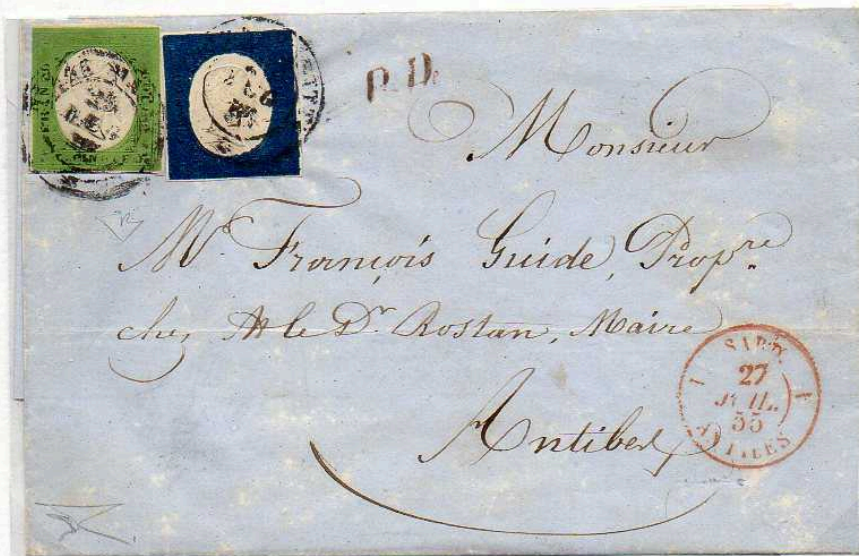 P.D.
Monsieur
Mr François Guide, Propre
chez Mr le Dr Rostan, Maire
Antibes
SARD.
27
JUIL.
55
ANTIBES